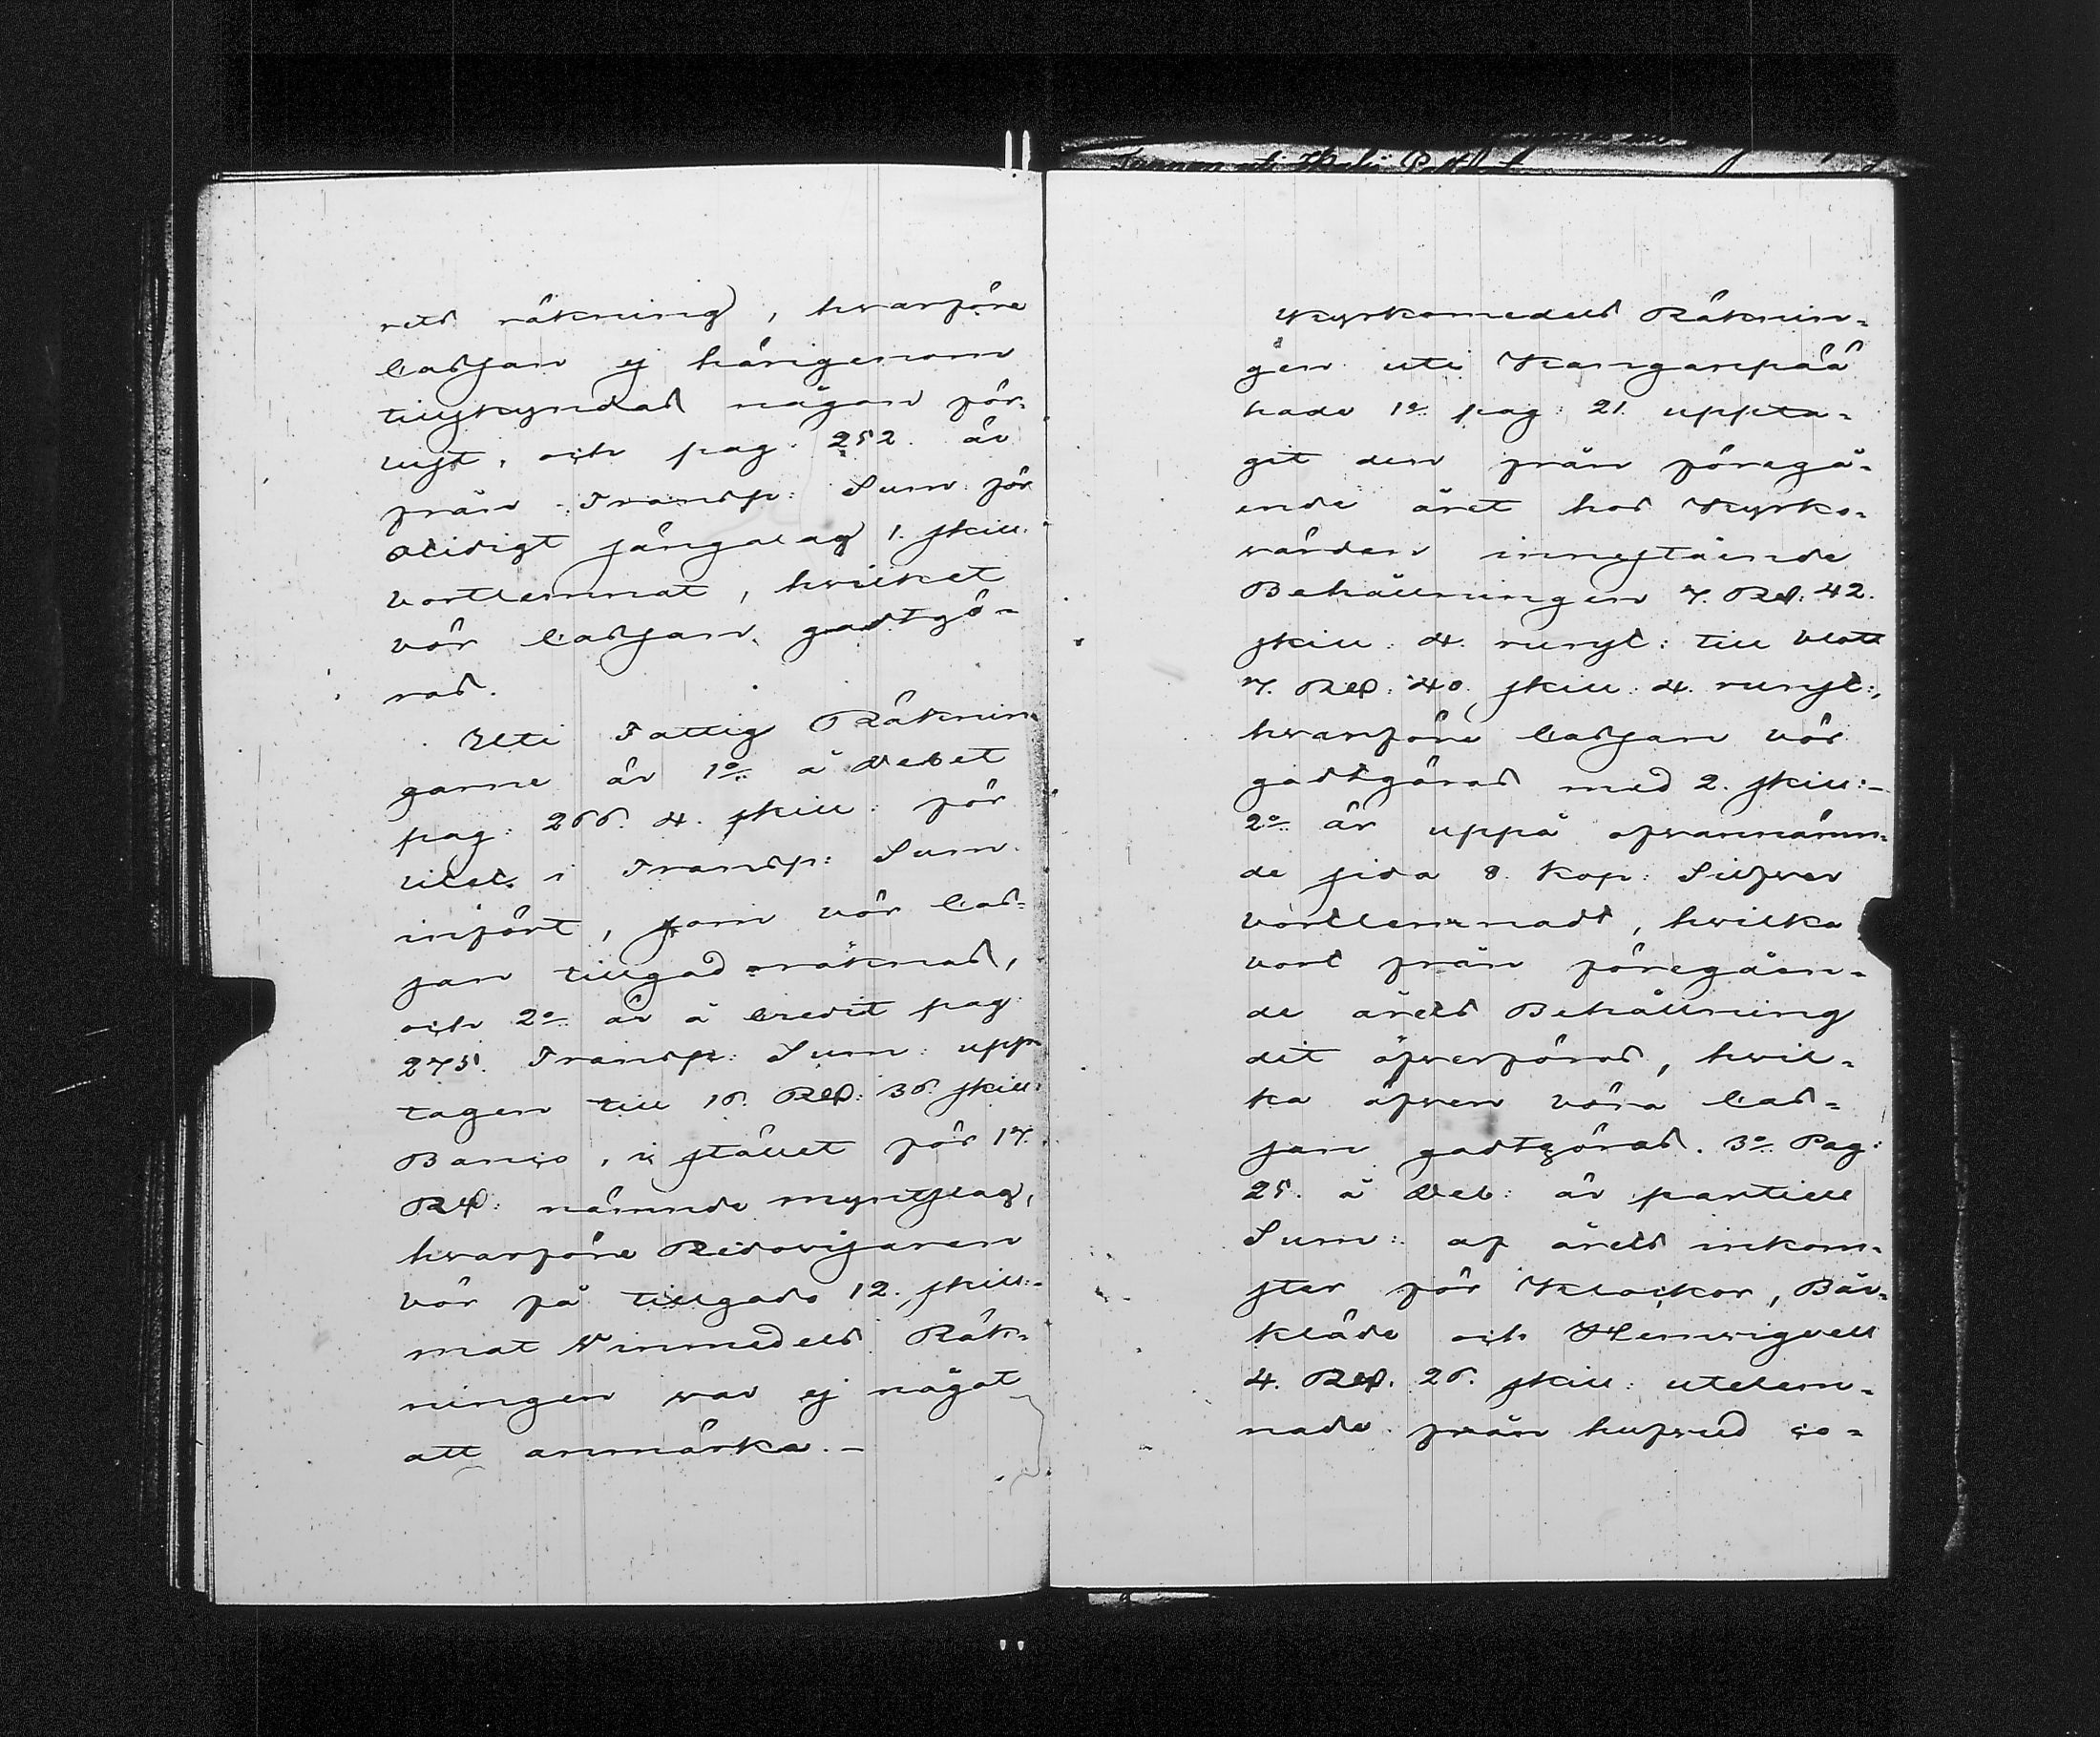 rets räkning), hvarföre
Cassan ej härigenom
tillskyndas någon för-
lust, och pag. 252. är
från Transp: Sum för
Olidigt sängalag 1. skill.
bortlemnat, hvilket
bör Cassan godtgö-
ras.
Uti Fattig Räknin-
garne är 1o å Debet
pag: 266. 4. skill: för
litet i Transp: Sum.
infört, som bör Cas-
san tillgodoräknas,
och 2o är å Credit pag
275. Transp: Sum: upp-
tagen till 16. Rd: 36. skill:
Banco, i stället för 17.
Rd: nämnde myntslag,
hvarföre Redovisaren
bör få tillgodo 12. skill:-
mot Vinmedels Räk-
ningen var ej något
att anmärka.-
Kyrkomedels Räknin-
gen uti Kangarpää
hade 1o pag: 21. uppta-
git den från föregå-
ende året hos Kyrko-
värden innestående
Behållningen 7. Rd: 42.
skill: 4. runst: till blott
7. Rd: 40. skill: 4. runst:,
hvarföre Cassan bör
godtgöras med 2. skill:-
2o är uppå ofvannämn-
de sida 8. Kop: Silfver
bortlemnadt, hvilka
bort från föregåen-
de årets Behållning
dit öfverföras, hvil-
ka äfven böra Cas-
san godtgöras. 3o Pag:
25. å Deb: är partiell
Sum: af årets inkom-
ster för Klockor, Bår-
kläde och
4. Rd. 26. skill: utelem-
nade från hufvud co-